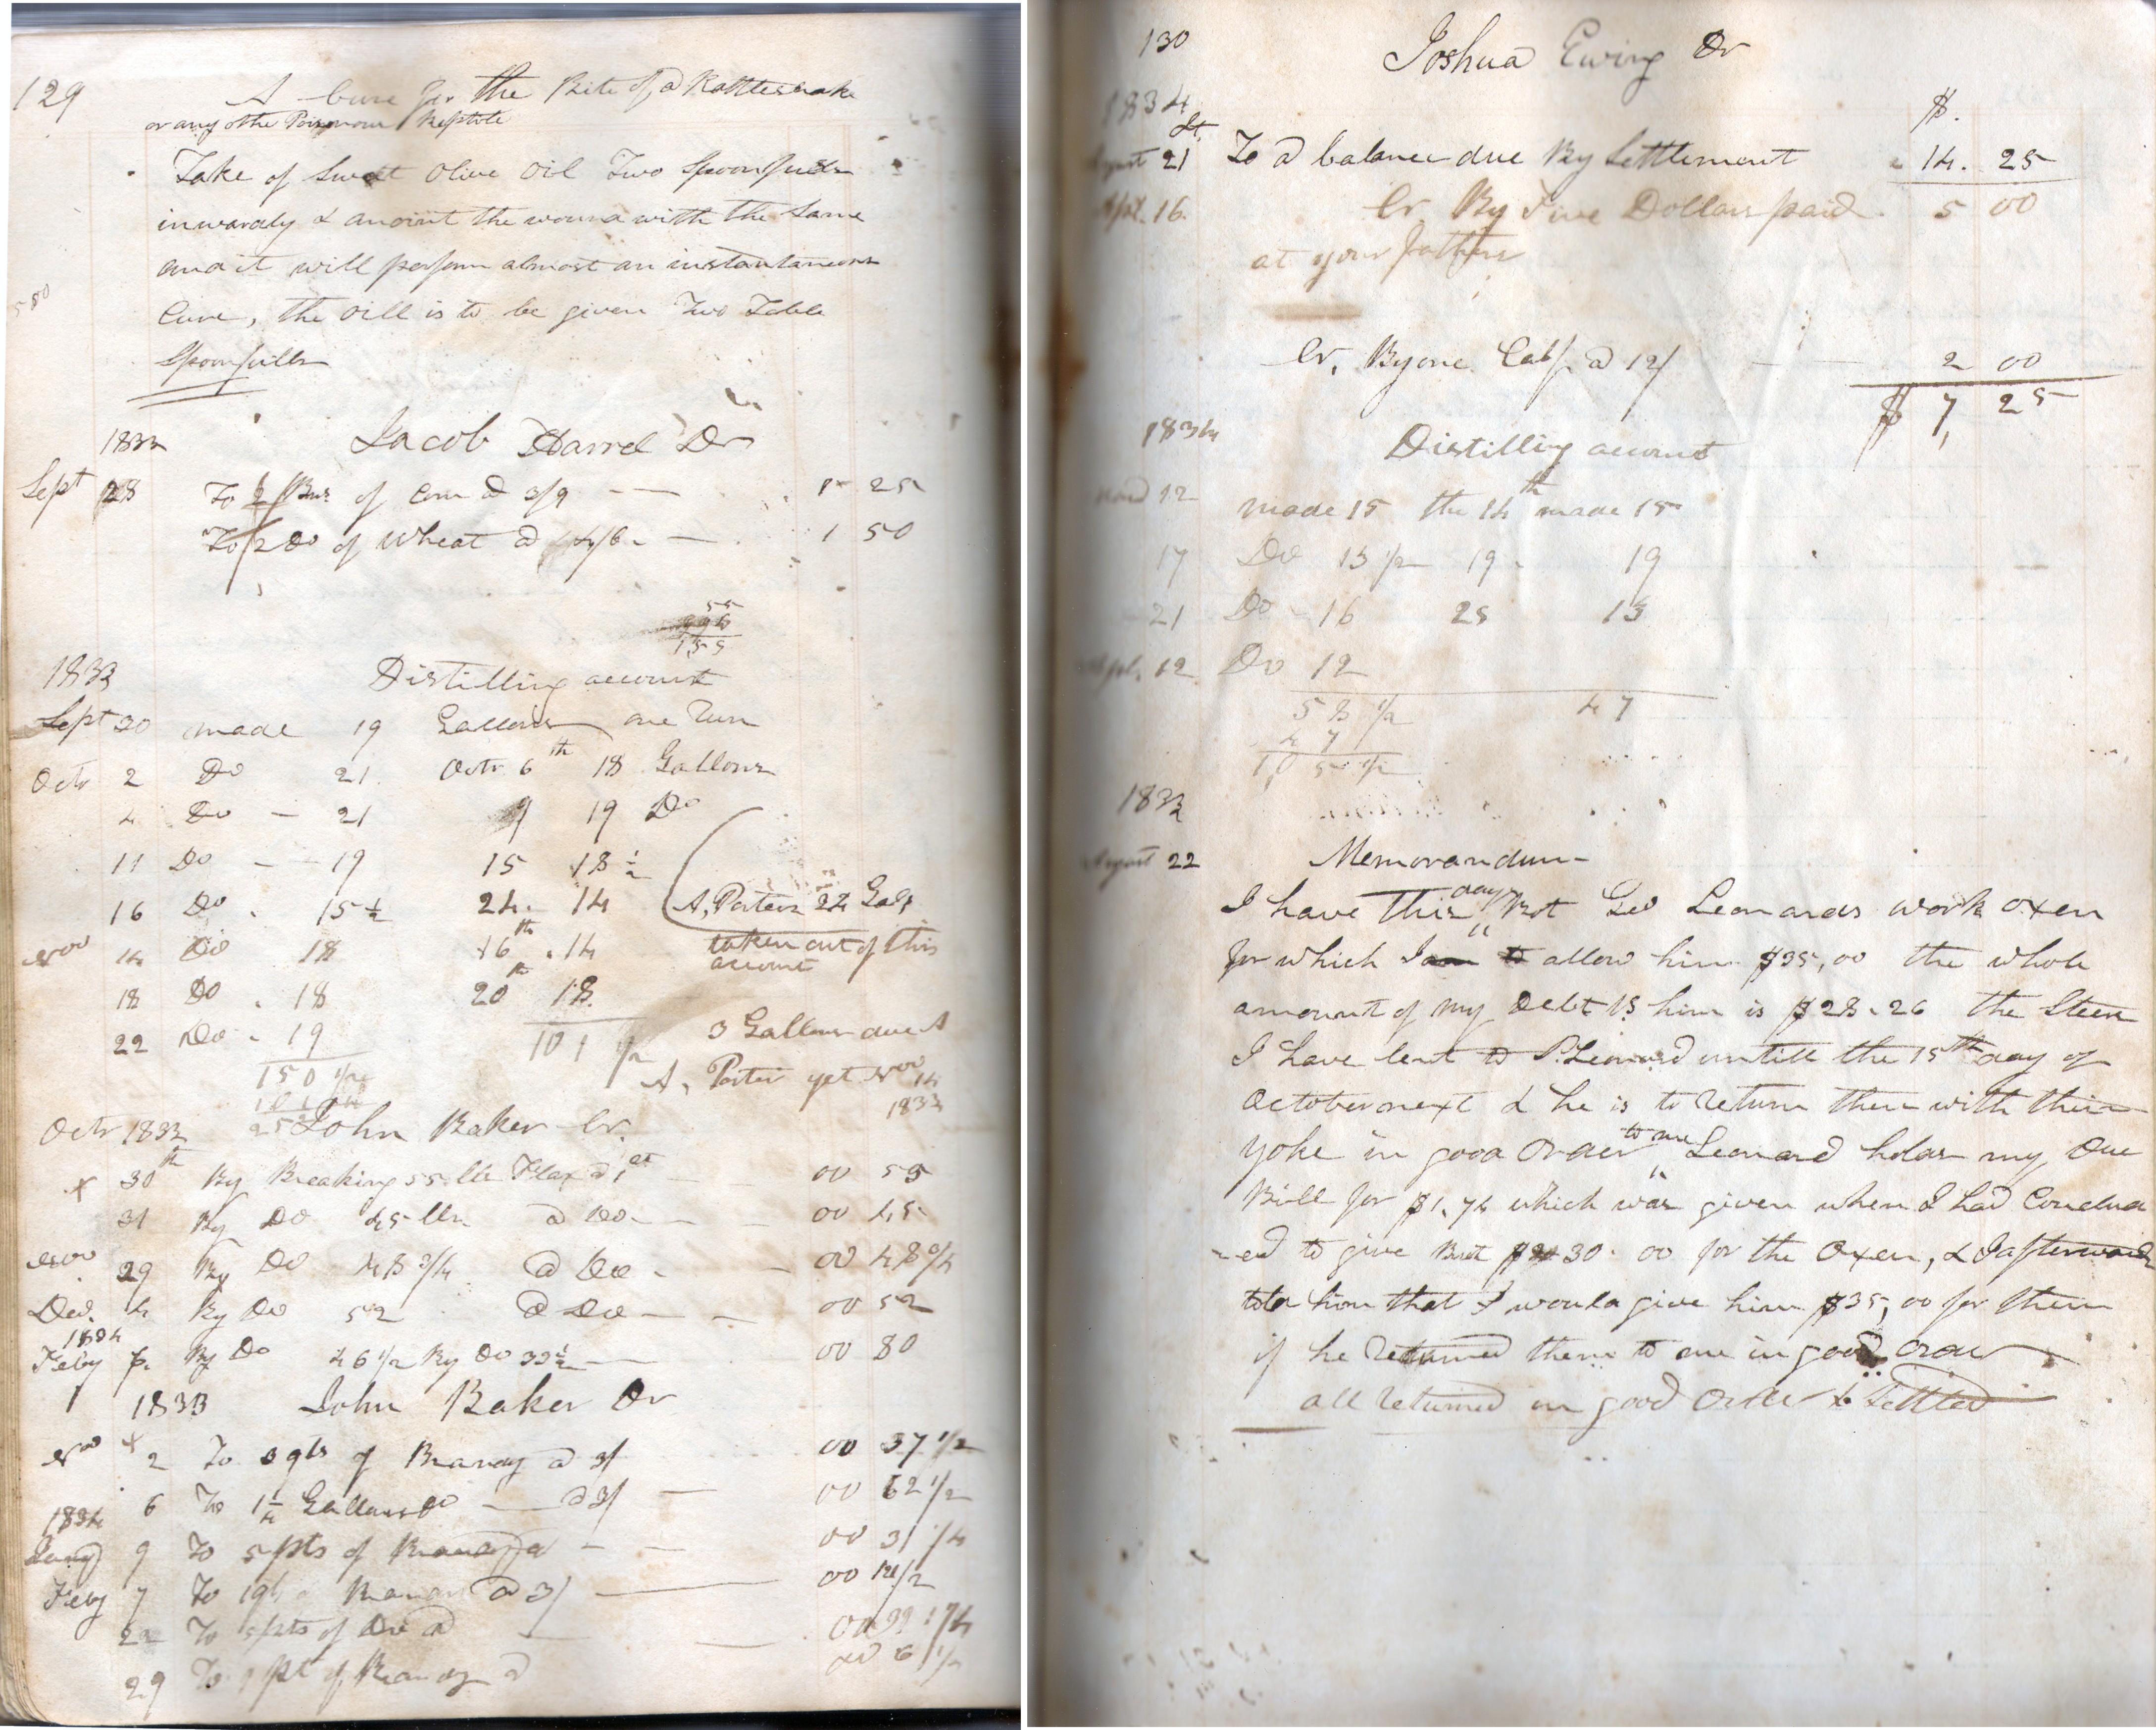 129
A Cure for the Bite of a Rattlesnake
or any othe Poisonous Reptile
Take of Sweet Olive Oil Two Spoonfulls
inwardly & anoint the wound with the Same
and it will perform almost an instantaneous
Cure, the Oill is to be given Two Table
Spoonfulls
1833 Jacob Harrel Dr
Sept 28 To 2 Bus of Corn @ 3/9 1 25
To 2 Do of Wheat @ 4/6 1 50
55
155
1833 Distilling account
Sept 30 made 19 Gallons one Run
Octr 2 Do 21 Octr 6th 18 Gallons
4 Do 21 9 19 Do
11 Do 19 15 18 1/2
16 Do 15 1/2 24 14 A, Porters 24 Gals
Nov 14 Do 18 16th 14 taken out of this
account
18 Do 18 20th 18
22 Do 19 101 1/2 3 Gallons due A
150 1/2 A, Porter yet Nov 14
1833
Octr 1833 John Baker Cr.
x 30th By Breaking 55 lb Flax @ 1 ct 00 55
31 By Do 45 lbs @ Do 00 45
Nov 29 By Do 48 3/4 @ Do 00 48 3/4
Dec. 4 By Do 52 @ Do 00 52
1834
Feby By Do 46 1/2 By Do 33 1/2 00 80
1833 John Baker Dr
Nov x 2 To 3 qts of Brandy @ 3/ 00 37 1/2
6 To 1 1/4 Gallons Do @ 3/ 00 62 1/2
1834
Jany 9 To 5 pts of Brandy @ 00 31 1/4
Feby 7 To 1 qt Brandy @ 3/ 00 12 1/2
22 To 5 pts of Do @ 00
29 To 1 pt of Brandy @ 00 6 1/2
130
Joshua Ewing Dr
1834 $.
August 21st To a balance due By Settlement 14. 25
Sept. 16. Cr. By Five Dollars paid 5 00
at your fathers
Cr. By one Calf @ 12/ 2 00
$ 7, 25
1834 Distilling account
12 made 15 the 14th made 15
17 Do 13 1/2 19 19
21 Do 16 25 13
12 Do 12
58 1/2 47
47
1,05 1/2
1833
August 22 Memorandum
I have this day Bot Geo Leonards work oxen
for which I am to allow him $35,00 the whole
amount of my Debt to him is $28.26 the Steers
I have lent to P. Leonard untill the 15th day of
October next & he is to return them with their
yoke in good order to me Leonard holds my Due
Bill for $1.74 which was given when I had Conclud
-ed to give But $30.00 for the Oxen, & I afterwards
told him that I would give him $35,00 for them
if he returned them to me in good order
all returned in good order & Settled